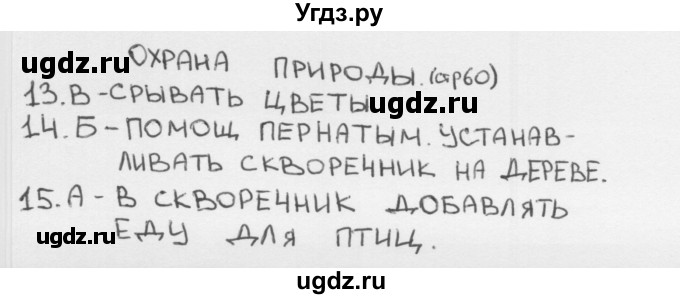 Угдз.ру
ugdz.ru ОХРАНА ПРИРОДЫ. (стр60)
13. В - СРЫВАТЬ ЦВЕТЫ ugdz.ru
14. Б - ПОМОЩ ПЕРНАТЫМ. УСТАНАВ-
ЛИВАТЬ СКВОРЕЧНИК НА ДЕРЕВЕ.
15. А - В СКВОРЕЧНИК ДОБАВЛЯТЬ
ugdz.ru ЕДУ ДЛЯ ПТИЦ.
ugdz.ru